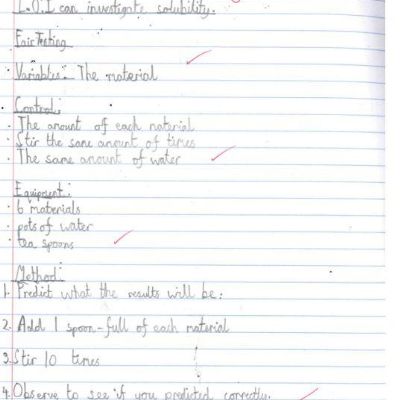 L.O. I can investigate solubility.
Fair Testing
Variables: The material
Control:
· The amount of each material
· Stir the same amount of times
· The same amount of water
Equipment:
· 6 materials
· pots of water
· tea spoons
Method:
1. Predict what the results will be:
2. Add 1 spoon-full of each material
3. Stir 10 times
4. Observe to see if you predicted correctly.